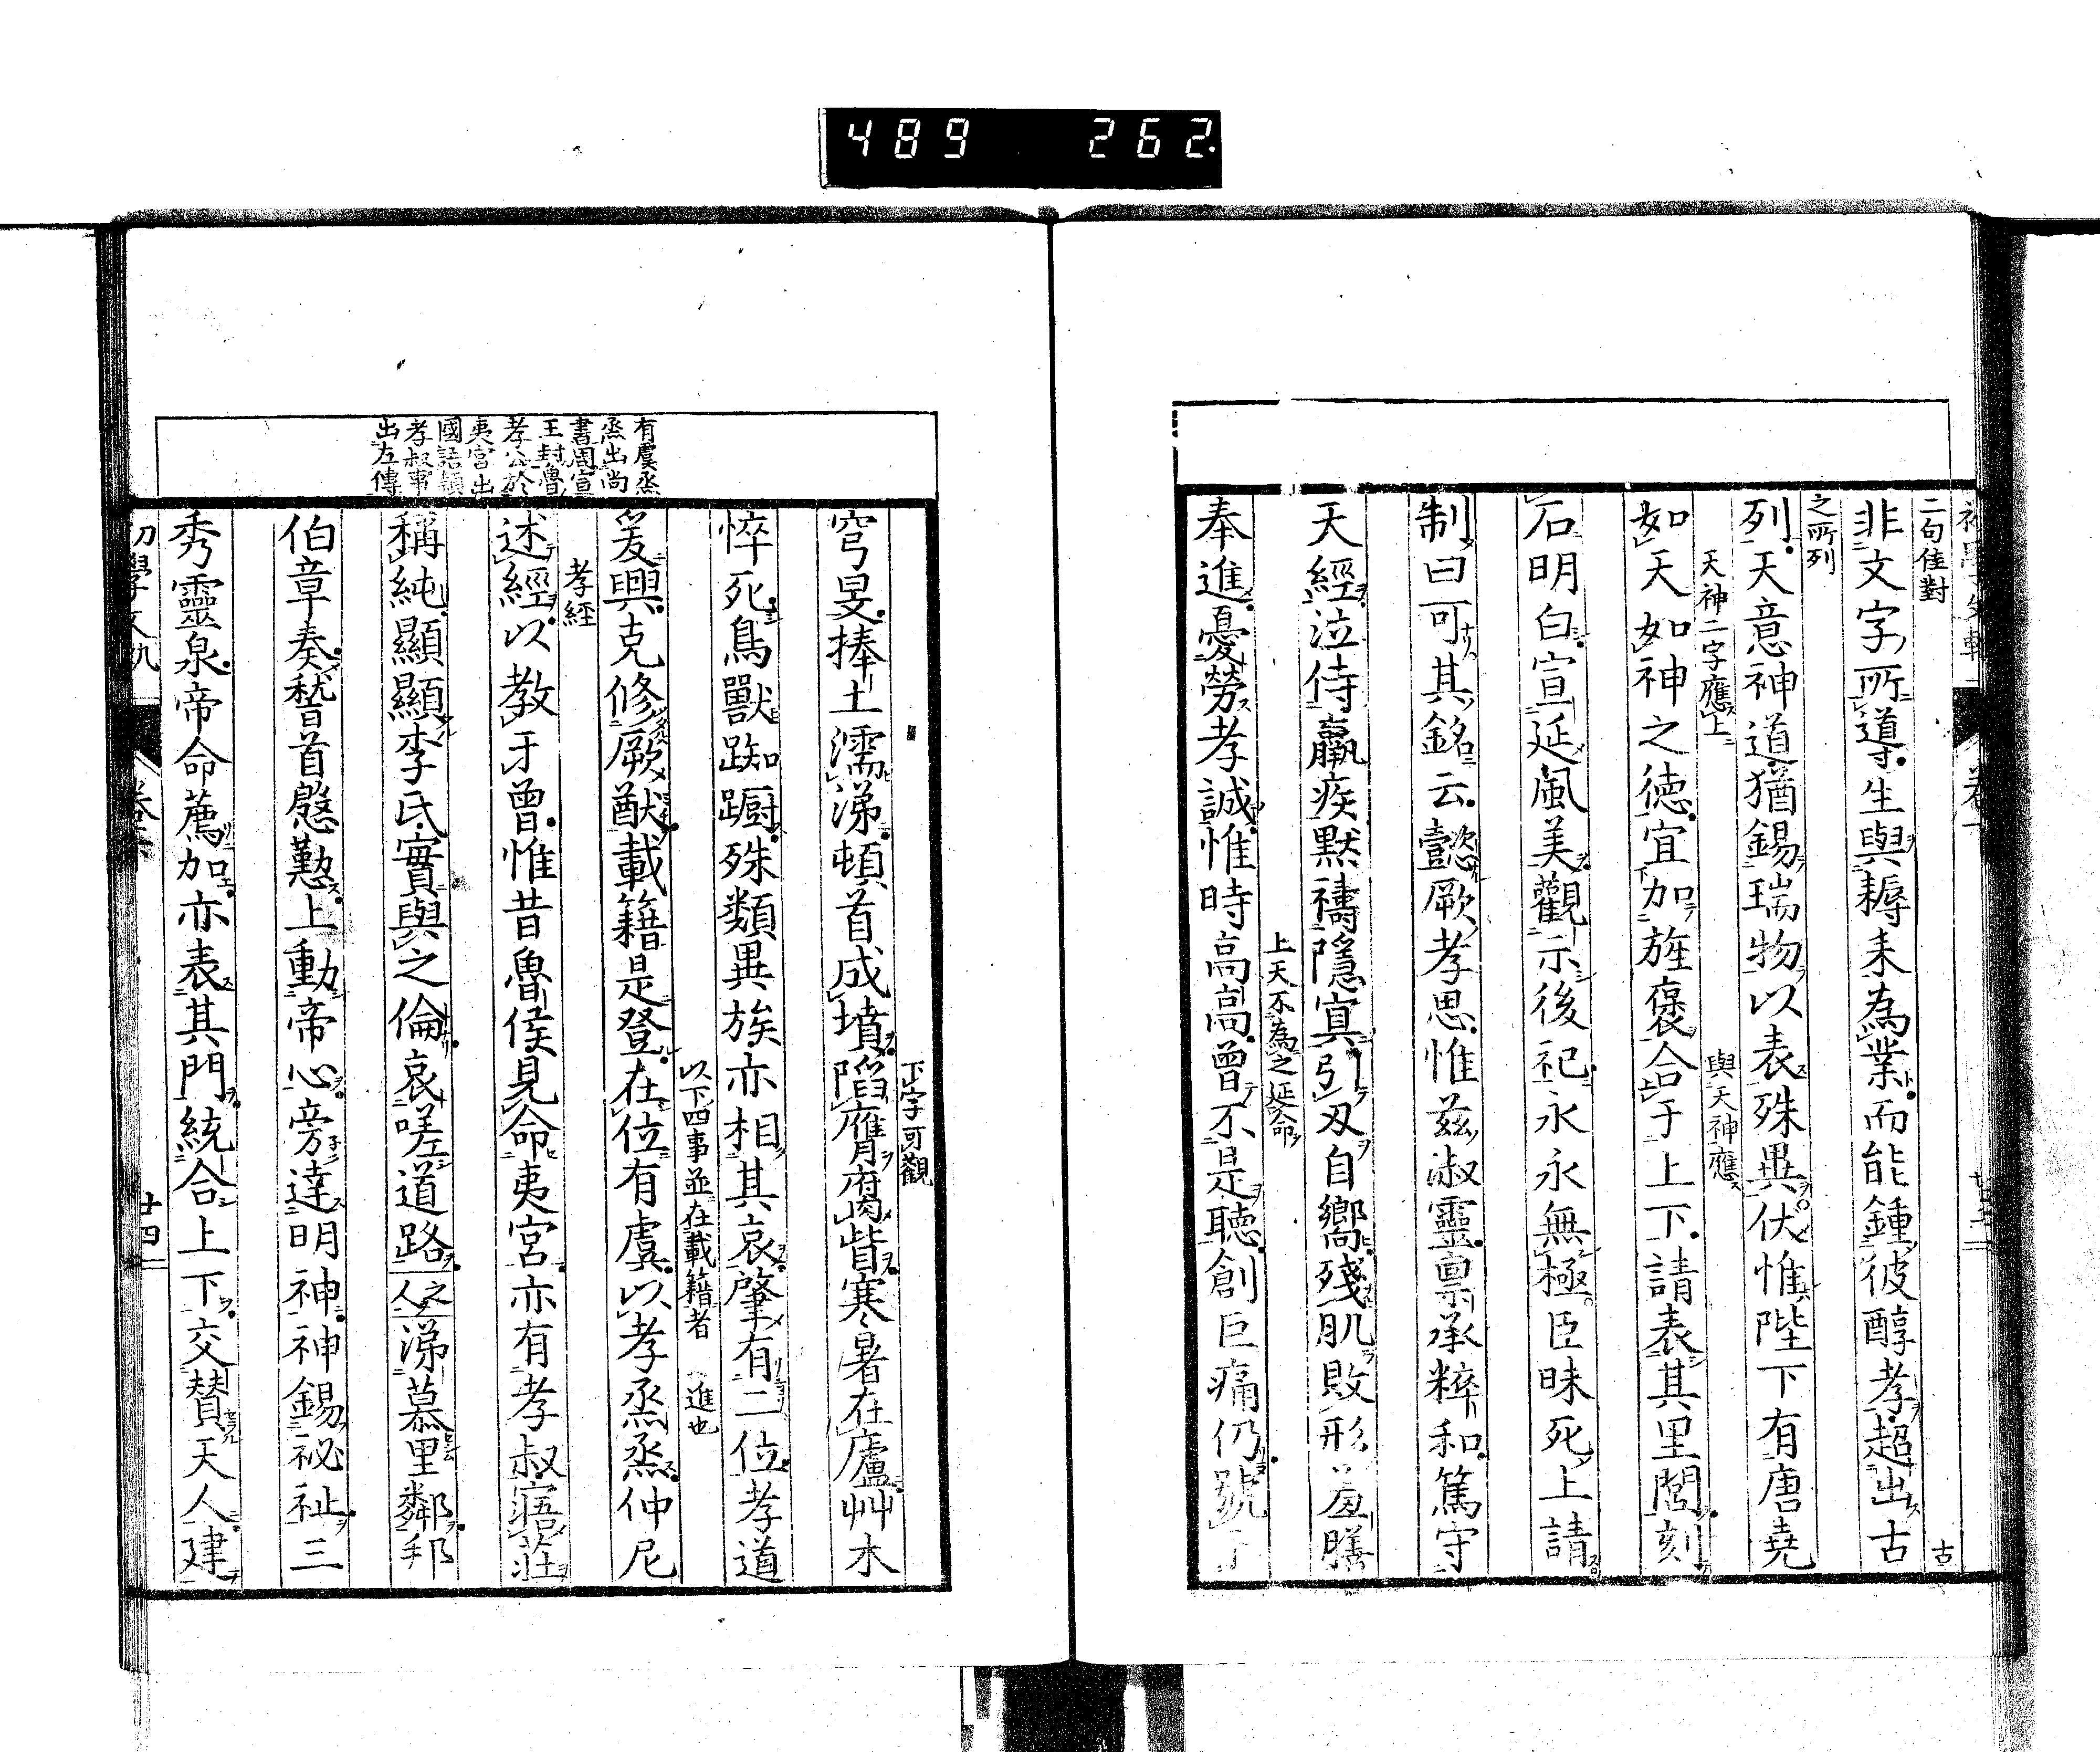 489 262
二句佳對
古
非文字所導生與耨耒為業而能鍾彼醇孝超出古
之所列
列天意神道猶錫瑞物以表殊異伏惟陛下有唐堯
天神二字應上
與天神應
如天如神之德宜加旌褒合于上下請表其里閭刻
石明白宣延風美觀示後祀永永無極臣昧死上請
制曰可其銘云懿厥孝思惟茲淑靈稟承粹和篤守
天經泣侍羸疾默禱隱冥引刃自嚮殘肌敗形羞膳
上天不為之延命
奉進憂勞孝誠惟時高高曾不是聽創巨痛仍號于
下字可觀
穹旻捧土濡涕頓首成墳陷膺腐眥寒暑在廬艸木
悴死鳥獸踟躕殊類異族亦相其哀肇有二位孝道
以下四事並在載籍者
進也
爰興克修厥猷載籍是登在位有虞以孝烝烝仲尼
孝經
述經以教于曾惟昔魯侯見命夷宮亦有孝叔寤莊
稱純顯顯李氏實與之倫哀嗟道路人之涕慕里鄰邦
伯章奏稽首慇懃上動帝心旁達明神神錫祕祉三
秀靈泉帝命薦加亦表其門統合上下交贊天人建
有虞烝
烝出尚
書周宣
王封魯
孝公於
夷宮出
國語穎
孝叔事
出左傳
廿四